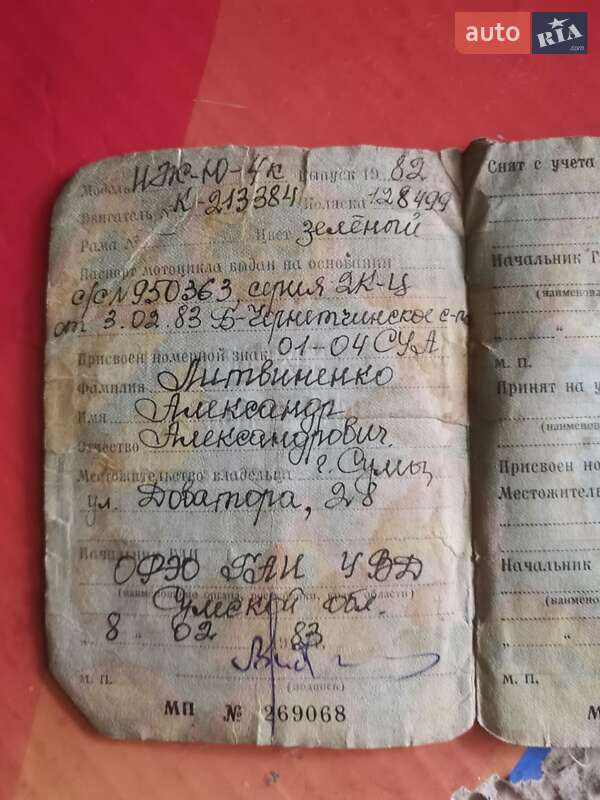 auto RIA.com
Модель ИЖ-Ю-4к Выпуск 19 82
Двигатель № К-213384 Коляска 128499
Рама № — Цвет зелёный
Паспорт мотоцикла выдан на основании
с/с №950363, серия 2К-Ц
от 3.02.83 Б-Чернетчинское с-по
Присвоен номерной знак 01-04 СУА
Фамилия Литвиненко
Имя Александр
Отчество Александрович.
Местожительство владельца г. Сумы,
ул. Доватора, 28
Начальник ГАИ
ОРЭО ГАИ УВД
Сумской обл.
"8" 02 1983
м. п. (подпись)
МП № 269068
Снят с учета
Начальник Г
(наименова
"
м. п.
Принят на у
(наименов
Присвоен но
Местожитель
Начальник
(наименов
" "
м. п.
М